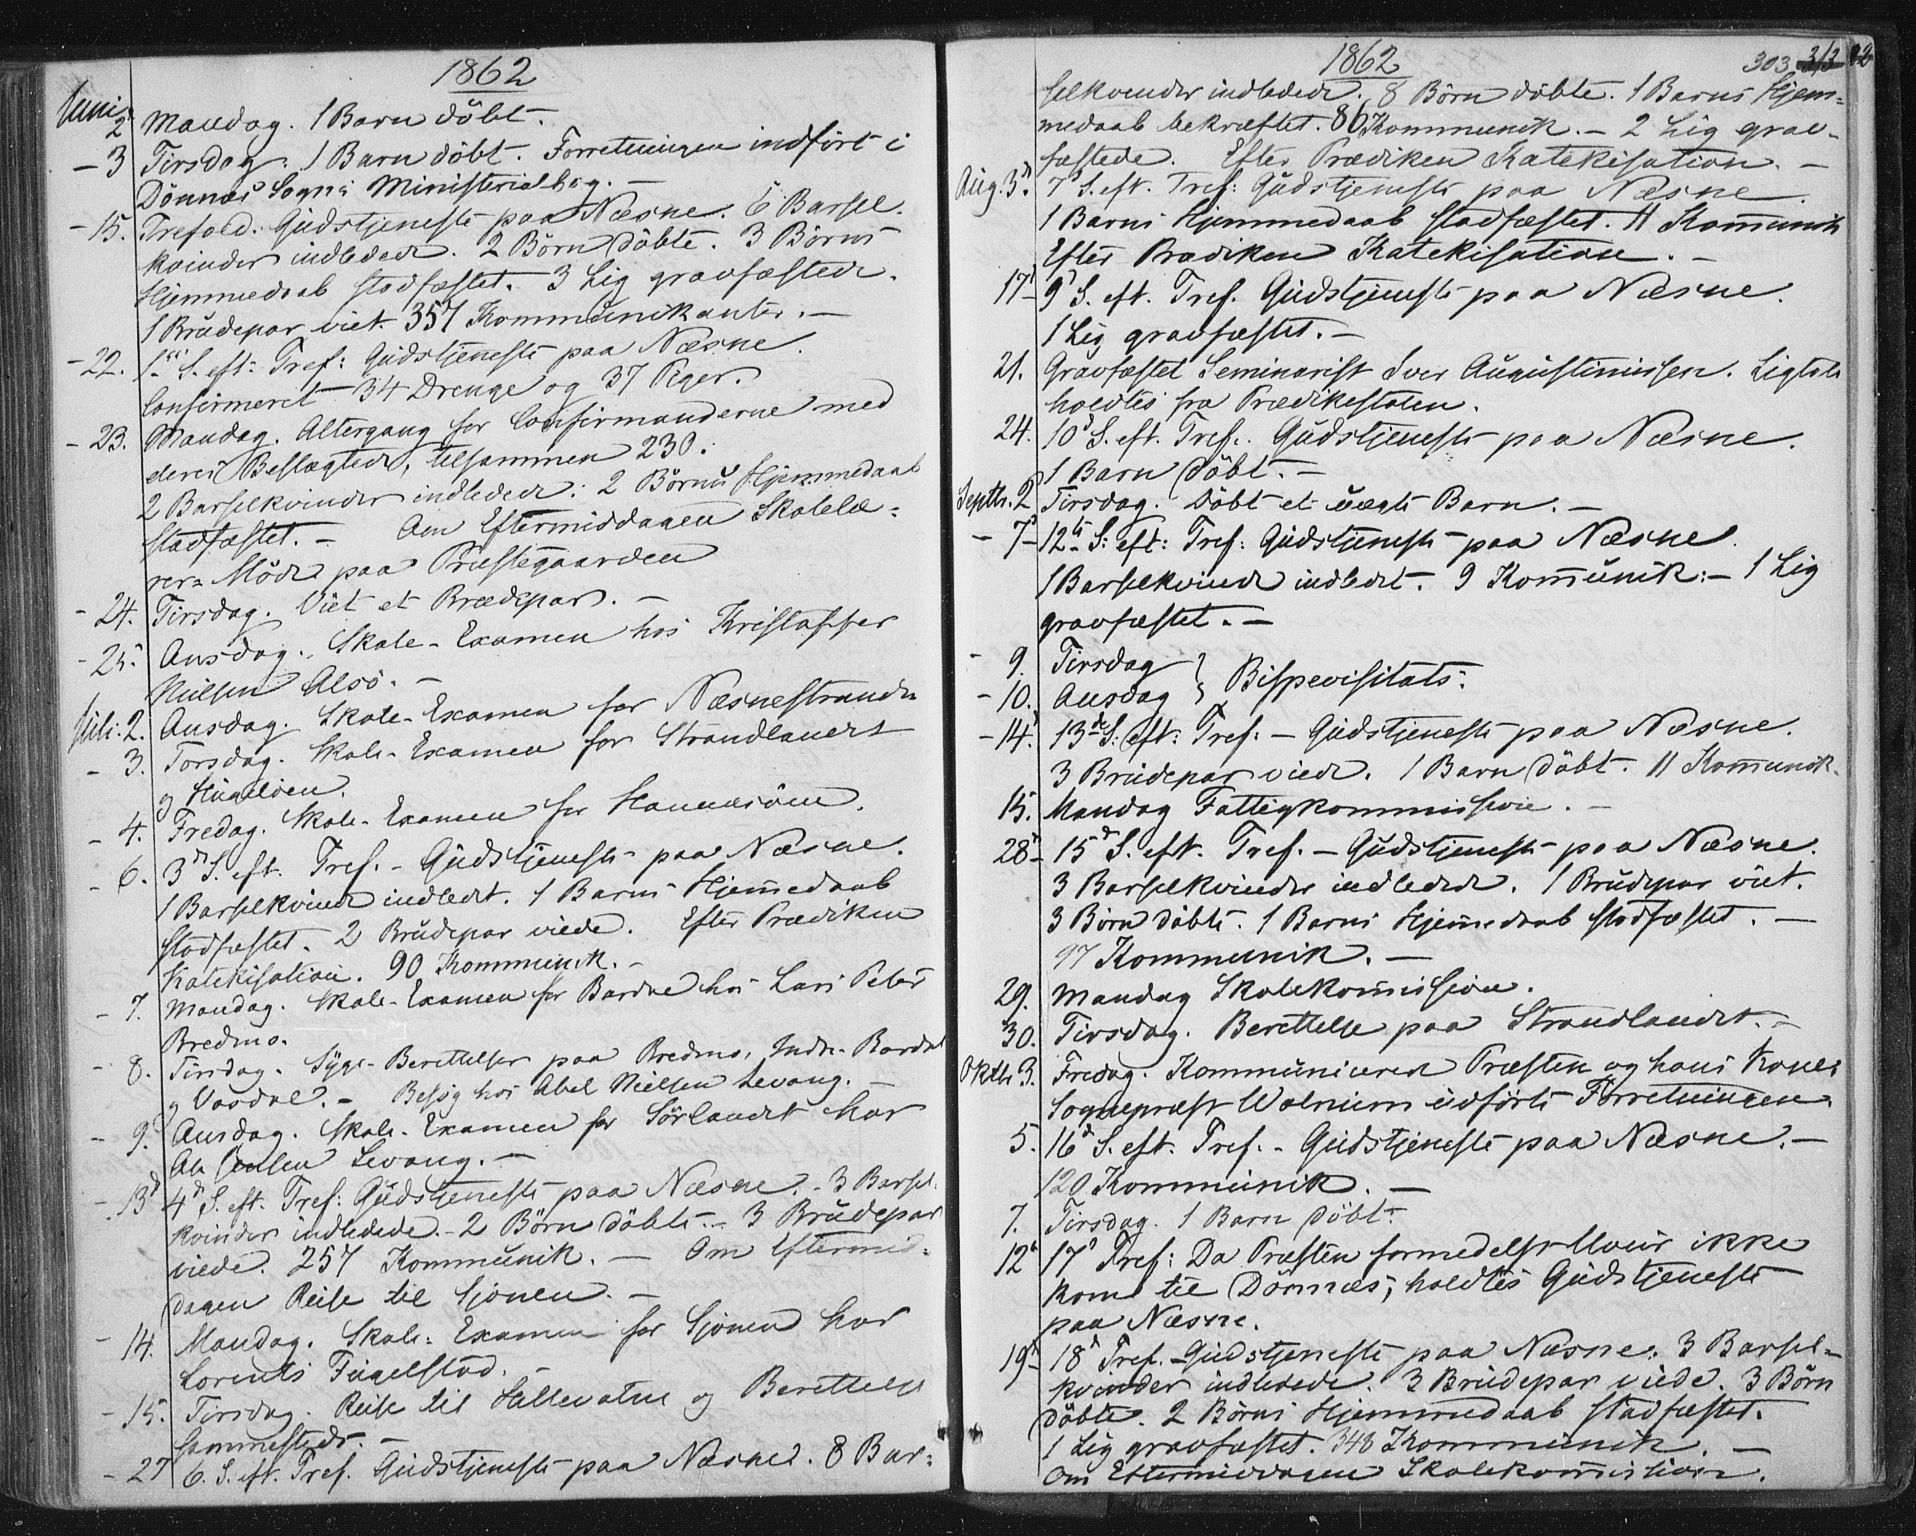 1862
Juni 2 Mandag. 1 Barn döbt.
- 3 Tirsdag. 1 Barn döbt. Forretningen indført i
Dönnæs Sogns Ministerialbog. -
- 15. Trefold. Gudstjeneste paa Næsne. 6 Barsel-
kvinder indledede. 2 Börn döbte. 3 Börns
Hjemmedaab stadfæstet. 3 Lig gravfæstede.
1 Brudepar viet. 357 Kommunikanter. -
- 22. 1ste S. eft. Tref: Gudstjeneste paa Næsne.
Confirmeret 34 Drenge og 37 Piger.
- 23. Mandag. Altergang for Confirmanderne med
deres Beslægtede, tilsammen 230.
2 Barselkvinder indledede. 2 Börns Hjemmedaab
stadfæstet. - Om Eftermiddagen Skolelæ-
rer-Möde paa Præstegaarden
- 24. Tirsdag. Viet et Brudepar. -
- 25. Onsdag. Skole-Examen hos Kristoffer
Nielsen Alsö. -
Juli 2. Onsdag. Skole-Examen for Næsnestrand
- 3. Torsdag. Skole-Examen for Strandlandet
og Hugelöen.
- 4. Fredag. Skole-Examen for Hannæsöen.
- 6. 3d S. eft. Tref. - Gudstjeneste paa Næsne.
1 Barselkvinde indledet. 1 Barns Hjemedaab
stadfæstet. 2 Brudepar viede. Efter Prædiken
Katekisation. 90 Kommunik. -
- 7. Mandag. Skole-Examen for Bardne hos Lars Peter
Bredmo.
- 8. Tirsdag. Syge-Berettelser paa Bredmo, Indre Bardal
og Vaadal. - Besög hos Abel Nielsen Levang. -
- 9. Onsdag. Skole-Examen for Sörlandet hos
Ole Jensen Levang. -
- 13d 4d S. eft. Tref: Gudstjeneste paa Næsne. - 3 Barsel-
kvinder indledede. - 2 Börn döbte. - 3 Brudepar
viede. 257 Kommunik. - Om Eftermid-
dagen Reise til Sjonen. -
- 14. Mandag. Skole-Examen for Sjonen hos
Lorents Fugelstad. -
- 15. Tirsdag. Reise til Hallevatne og Berettelse
sammesteds. -
- 27 6. S. eft. Tref. Gudstjeneste paa Næsne. 8 Bar-
1862 303 313
selkvinder indledede. 8 Börn döbte. 1 Barns Hjem-
medaab bekræftet. 86 Kommunik. - 2 Lig grav-
fæstede. Efter Prædiken Katekisation. -
Aug. 3d 7d S. eft. Tref: Gudstjeneste paa Næsne.
1 Barns Hjemmedaab stadfæstet. 11 Komunik
Efter Prædiken Katekisation. -
17d 9d S. eft. Tref. Gudstjeneste paa Næsne.
1 Lig gravfæstet. -
21. Gravfæstet Seminarist Iver Augustinussen. Ligtale
holdtes fra Prædikestolen.
24. 10d S. eft. Tref. Gudstjeneste paa Næsne.
1 Barn döbt. -
Septb. 2 Tirsdag. Döbt et uægte Barn. -
- 7 12te S. eft: Tref: Gudstjeneste paa Næsne.
1 Barselkvinde indledet. 9 Komunik: - 1 Lig
gravfæstet. -
- 9. Tirsdag } Bispevisitats.
- 10. Onsdag
- 14d 13de S. eft: Tref: - Gudstjeneste paa Næsne.
3 Brudepar viede. 1 Barn döbt. 11 Komunik.
15. Mandag Fattigkommission. -
28d 15d S. eft. Tref. - Gudstjeneste paa Næsne.
3 Barselkvinder indledede. 1 Brudepar viet.
3 Börn döbte. 1 Barns Hjemedaab stadfæstet. -
97 Kommunik. -
29. Mandag Skolekomission.
30. Tirsdag. Berettelse paa Strandlandet. -
Oktb. 3. Fredag. Kommunicerede Præsten og hans Kone.
Sognepræst Wolnum udförte Forretningen.
5. 16d S. eft. Tref. - Gudstjeneste paa Næsne. -
120 Kommunik. -
7. Tirsdag. 1 Barn döbt.
12d 17d Tref: Da Præsten formedelst Uveir ikke
kom til Dönnæs, holdtes Gudstjeneste
paa Næsne.
19d 18d Tref. Gudstjeneste paa Næsne. 3 Barsel-
kvinder indledede. 3 Brudepar viede. 3 Börn
döbte. 2 Börns Hjemmedaab stadfæstet.
1 Lig gravfæstet. 348 Kommunik. -
Om Eftermiddagen Skolekomission.